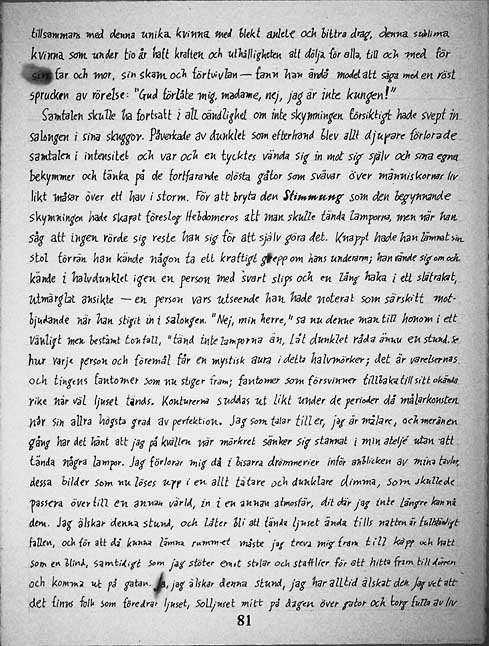 tillsammans med denna unika kvinna med blekt anlete och bittra drag, denna sublima
kvinna som under tio år haft kraften och uthålligheten att dölja för alla, till och med för
sin far och mor, sin skam och förtvivlan — fann han ändå modet att säga med en röst
sprucken av rörelse: "Gud förlåte mig, madame, nej, jag är inte kungen!"
Samtalen skulle ha fortsatt i all oändlighet om inte skymningen försiktigt hade svept in
salongen i sina skuggor. Påverkade av dunklet som efterhand blev allt djupare förlorade
samtalen i intensitet och var och en tycktes vända sig in mot sig själv och sina egna
bekymmer och tänka på de fortfarande olösta gåtor som svävar över människornas liv
likt måsar över ett hav i storm. För att bryta den Stimmung som den begynnande
skymningen hade skapat föreslog Hebdomeros att man skulle tända lamporna, men när han
såg att ingen rörde sig reste han sig för att själv göra det. Knappt hade han lämnat sin
stol förrän han kände någon ta ett kraftigt grepp om hans underarm; han vände sig om och
kände i halvdunklet igen en person med svart slips och en lång haka i ett slätrakat,
utmärglat ansikte — en person vars utseende han hade noterat som särskilt mot-
bjudande när han stigit in i salongen. "Nej, min herre," sa nu denne man till honom i ett
vänligt men bestämt tonfall, "tänd inte lamporna än, låt dunklet råda ännu en stund. Se
hur varje person och föremål får en mystisk aura i detta halvmörker; det är varelsernas
och tingens fantomer som nu stiger fram; fantomer som försvinner tillbaka till sitt okända
rike när väl ljuset tänds. Konturerna suddas ut likt under de perioder då målarkonsten
når sin allra högsta grad av perfektion. Jag som talar till er, jag är målare, och mer än en
gång har det hänt att jag på kvällen när mörkret sänker sig stannat i min ateljé utan att
tända några lampor. Jag förlorar mig då i bisarra drömmerier inför anblicken av mina tavlor,
dessa bilder som nu löses upp i en allt tätare och dunklare dimma, som skulle de
passera över till en annan värld, in i en annan atmosfär, dit där jag inte längre kan nå
dem. Jag älskar denna stund, och låter bli att tända ljuset ända tills natten är fullständigt
fallen, och för att då kunna lämna rummet måste jag treva mig fram till käpp och hatt
som en blind, samtidigt som jag stöter emot stolar och stafflier för att hitta fram till dörren
och komma ut på gatan. Ja, jag älskar denna stund, jag har alltid älskat den. Jag vet att
det finns folk som föredrar ljuset, solljuset mitt på dagen över gator och torg fulla av liv
81